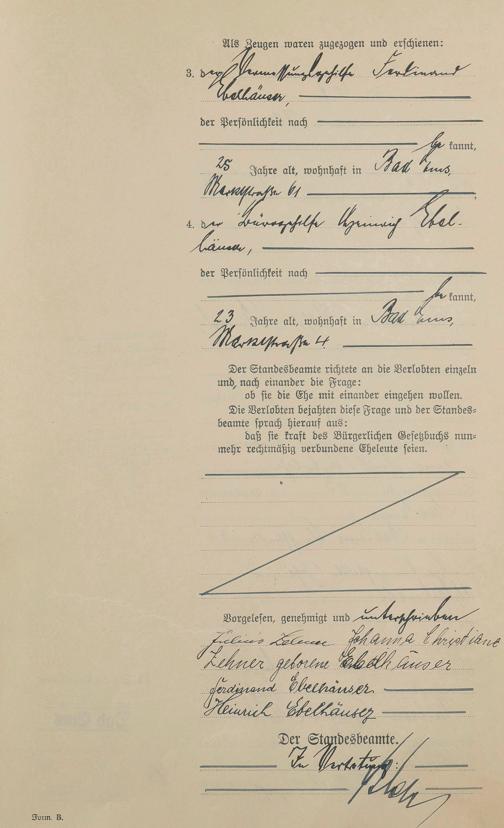 Als Zeugen waren zugezogen und erschienen:
3. der Vermessungsgehilfe Ferdinand
Ebelhäuser,
der Persönlichkeit nach
be kannt,
25 Jahre alt, wohnhaft in Bad Ems,
Marktstraße 61
4. der Bürogehilfe Heinrich Ebel-
häuser,
der Persönlichkeit nach
be kannt,
23 Jahre alt, wohnhaft in Bad Ems,
Marktstraße 4.
Der Standesbeamte richtete an die Verlobten einzeln
und nach einander die Frage:
ob sie die Ehe mit einander eingehen wollen.
Die Verlobten bejahten diese Frage und der Standes-
beamte sprach hierauf aus:
daß sie kraft des Bürgerlichen Gesetzbuchs nun-
mehr rechtmäßig verbundene Eheleute seien.
Vorgelesen, genehmigt und unterschrieben
Julius Zehner Johanna Christiane
Zehner geborene Ebelhäuser
Ferdinand Ebelhäuser
Heinrich Ebelhäuser
Der Standesbeamte.
In Vertretung:
Form. B.